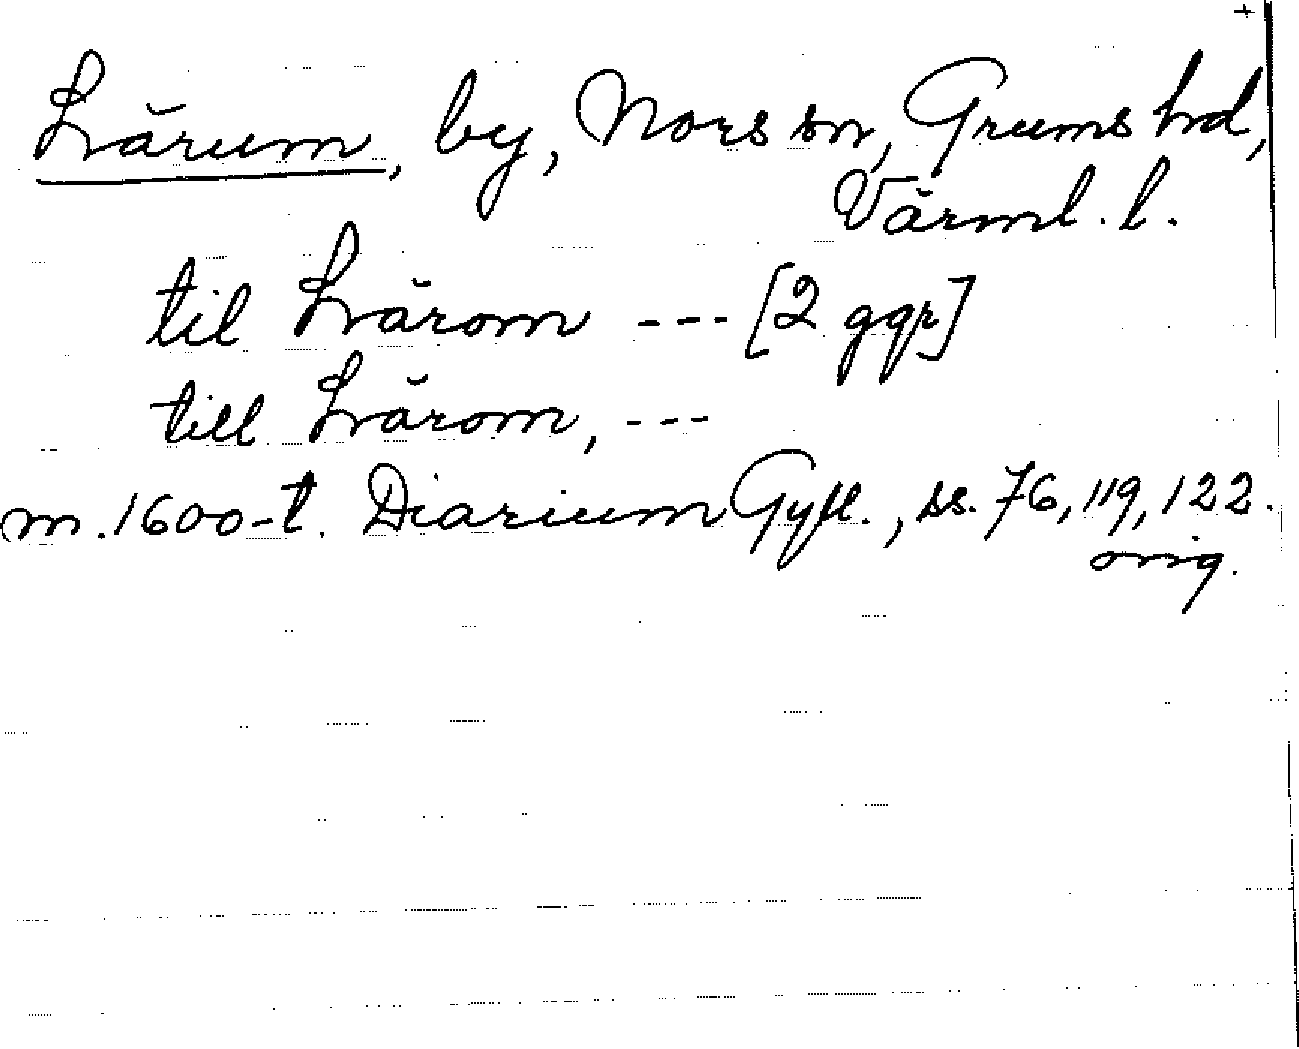 +
Lärum, by, Nors sn, Grums hd,
Värml. l.
til Lärom --- [2 ggr]
till Lärom, ---
m. 1600-t. Diarium Gyll., ss. 76, 119, 122.
orig.